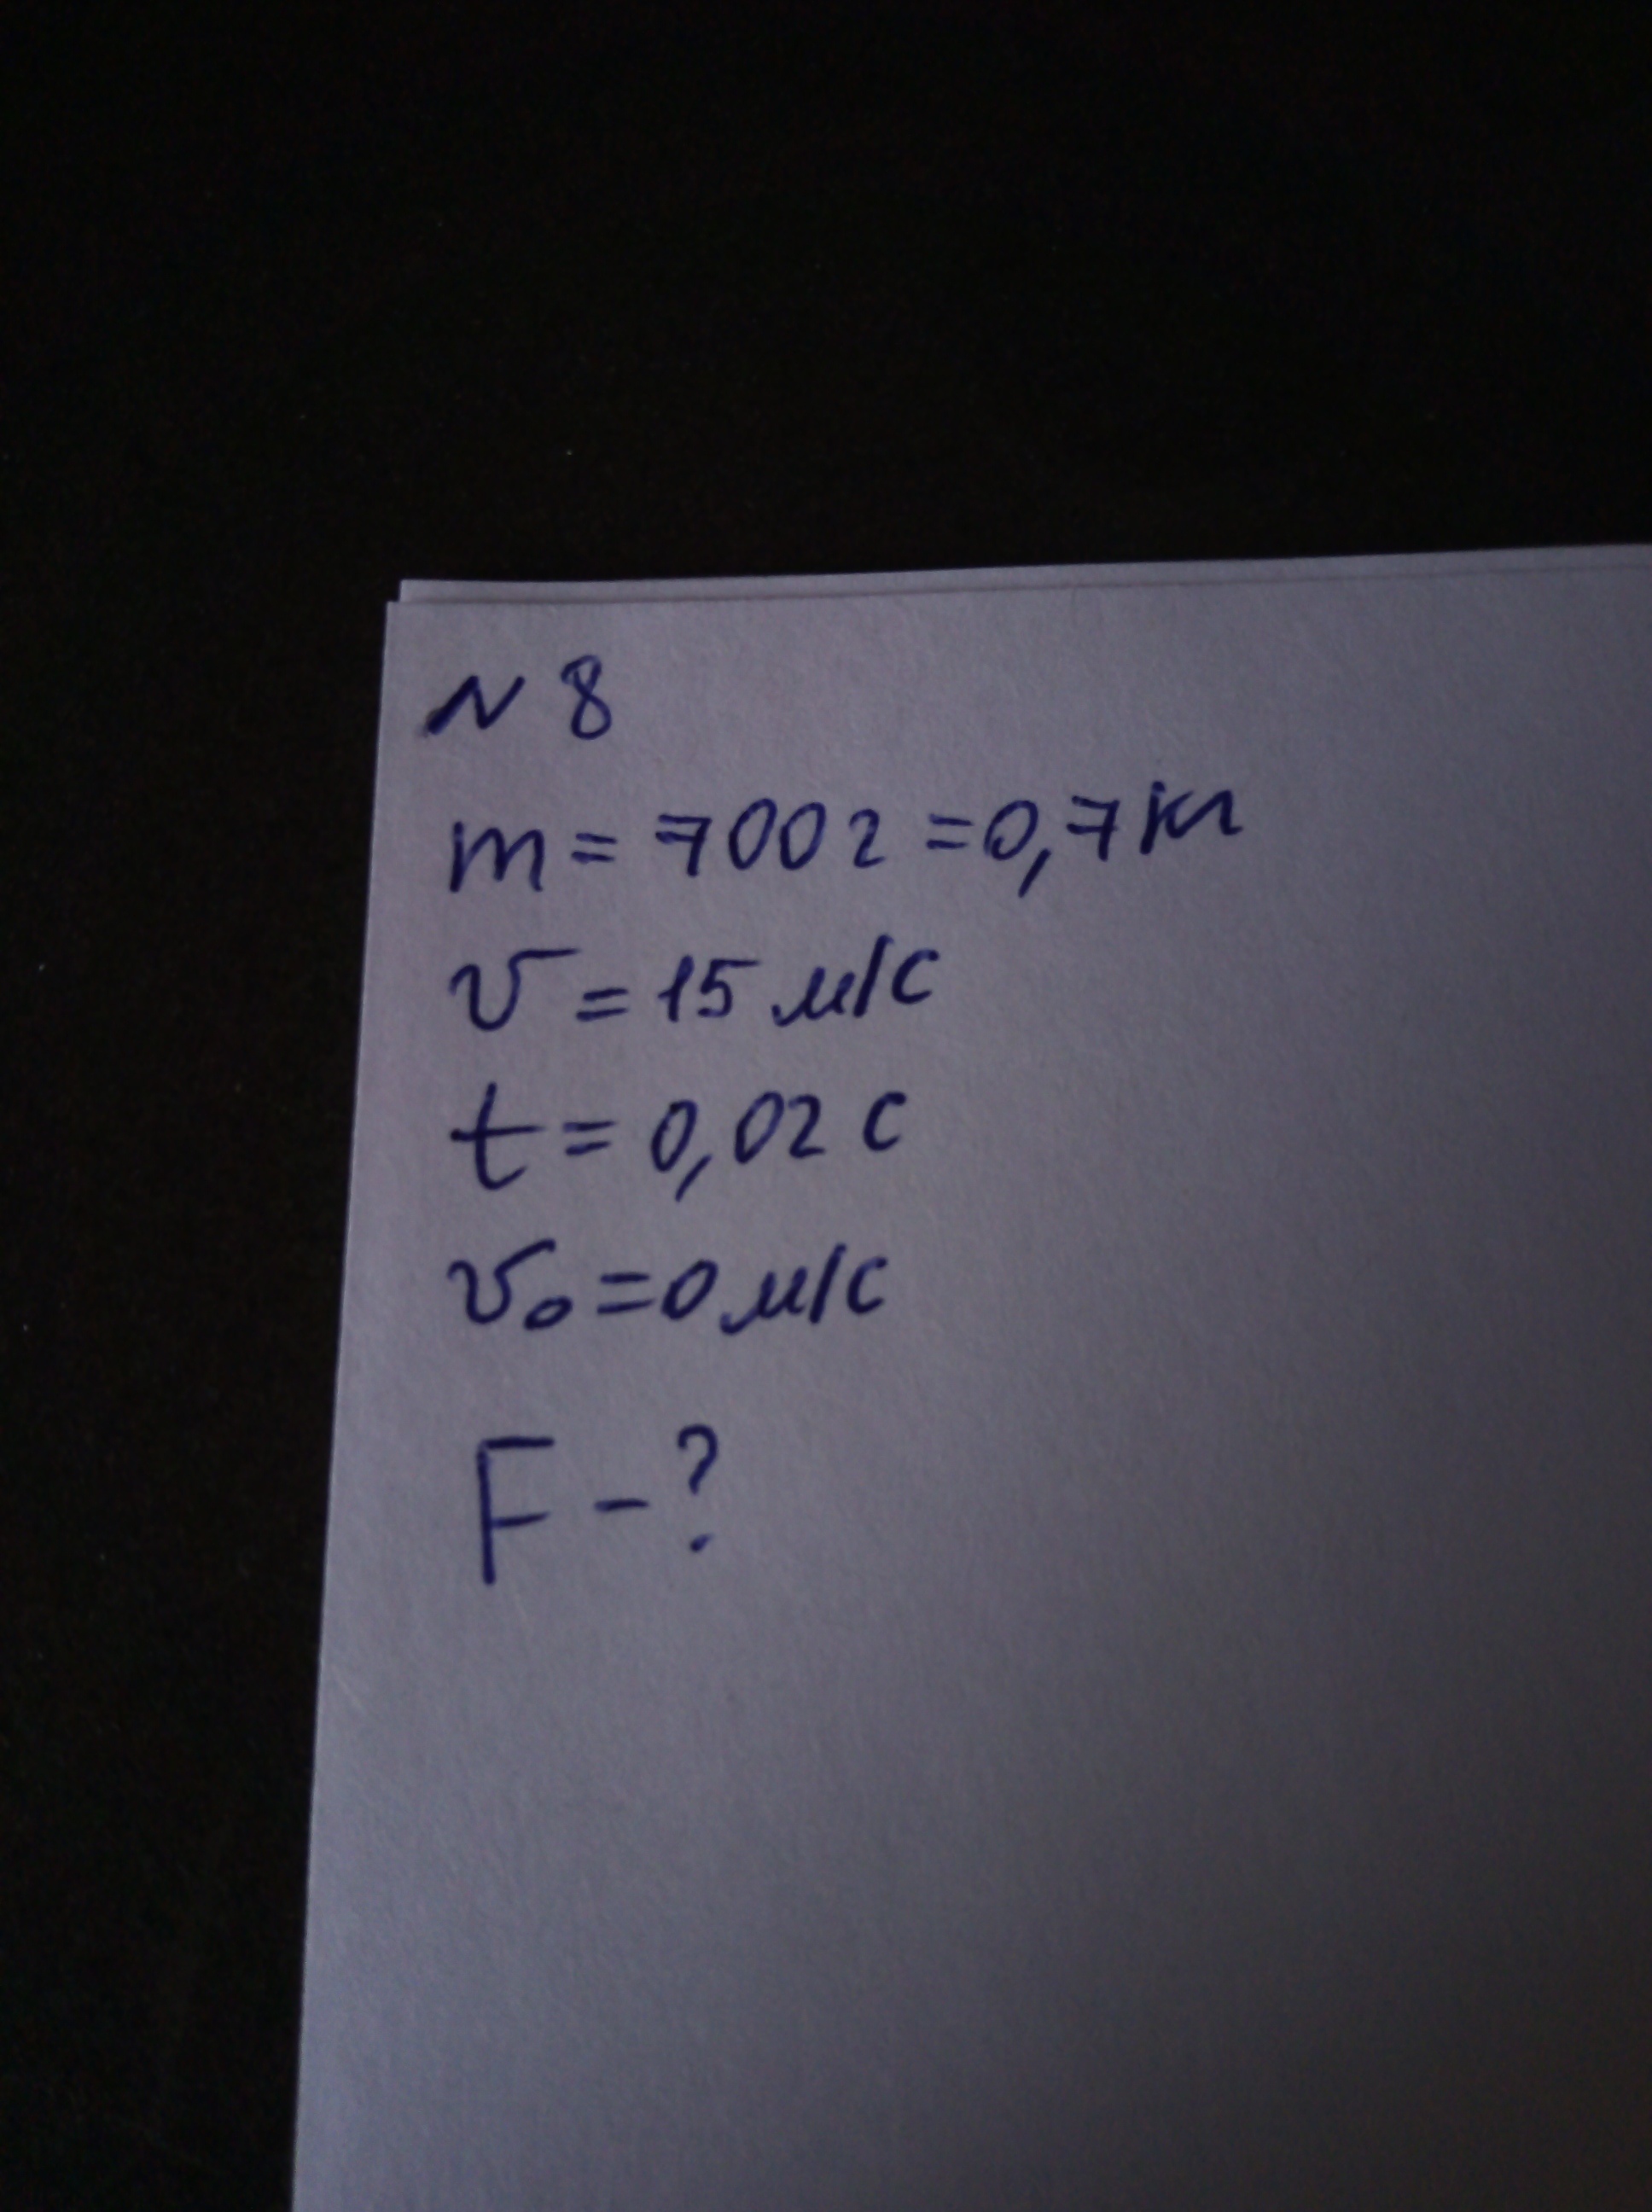 N 8
m = 700 г = 0,7 кг
v = 15 м/с
t = 0,02 с
v₀ = 0 м/с
F - ?